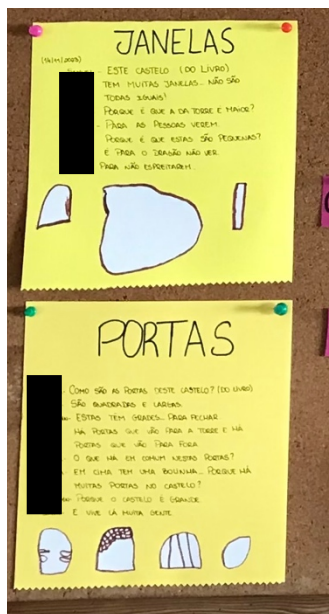 JANELAS
(14/11/2023)
- ESTE CASTELO (DO LIVRO)
TEM MUITAS JANELAS... NÃO SÃO
TODAS IGUAIS!
PORQUE É QUE A DA TORRE É MAIOR?
- PARA AS PESSOAS VEREM.
PORQUE É QUE ESTAS SÃO PEQUENAS?
É PARA O DRAGÃO NÃO VER.
PARA NÃO ESPREITAREM.
PORTAS
- COMO SÃO AS PORTAS DESTE CASTELO? (DO LIVRO)
SÃO QUADRADAS E LARGAS.
- ESTAS TÊM GRADES... PARA FECHAR.
HÁ PORTAS QUE VÃO PARA A TORRE E HÁ
PORTAS QUE VÃO PARA FORA.
O QUE HÁ EM COMUM NESTAS PORTAS?
- EM CIMA TEM UMA BOLINHA... PORQUE HÁ
MUITAS PORTAS NO CASTELO?
- PORQUE O CASTELO É GRANDE
E VIVE LÁ MUITA GENTE.